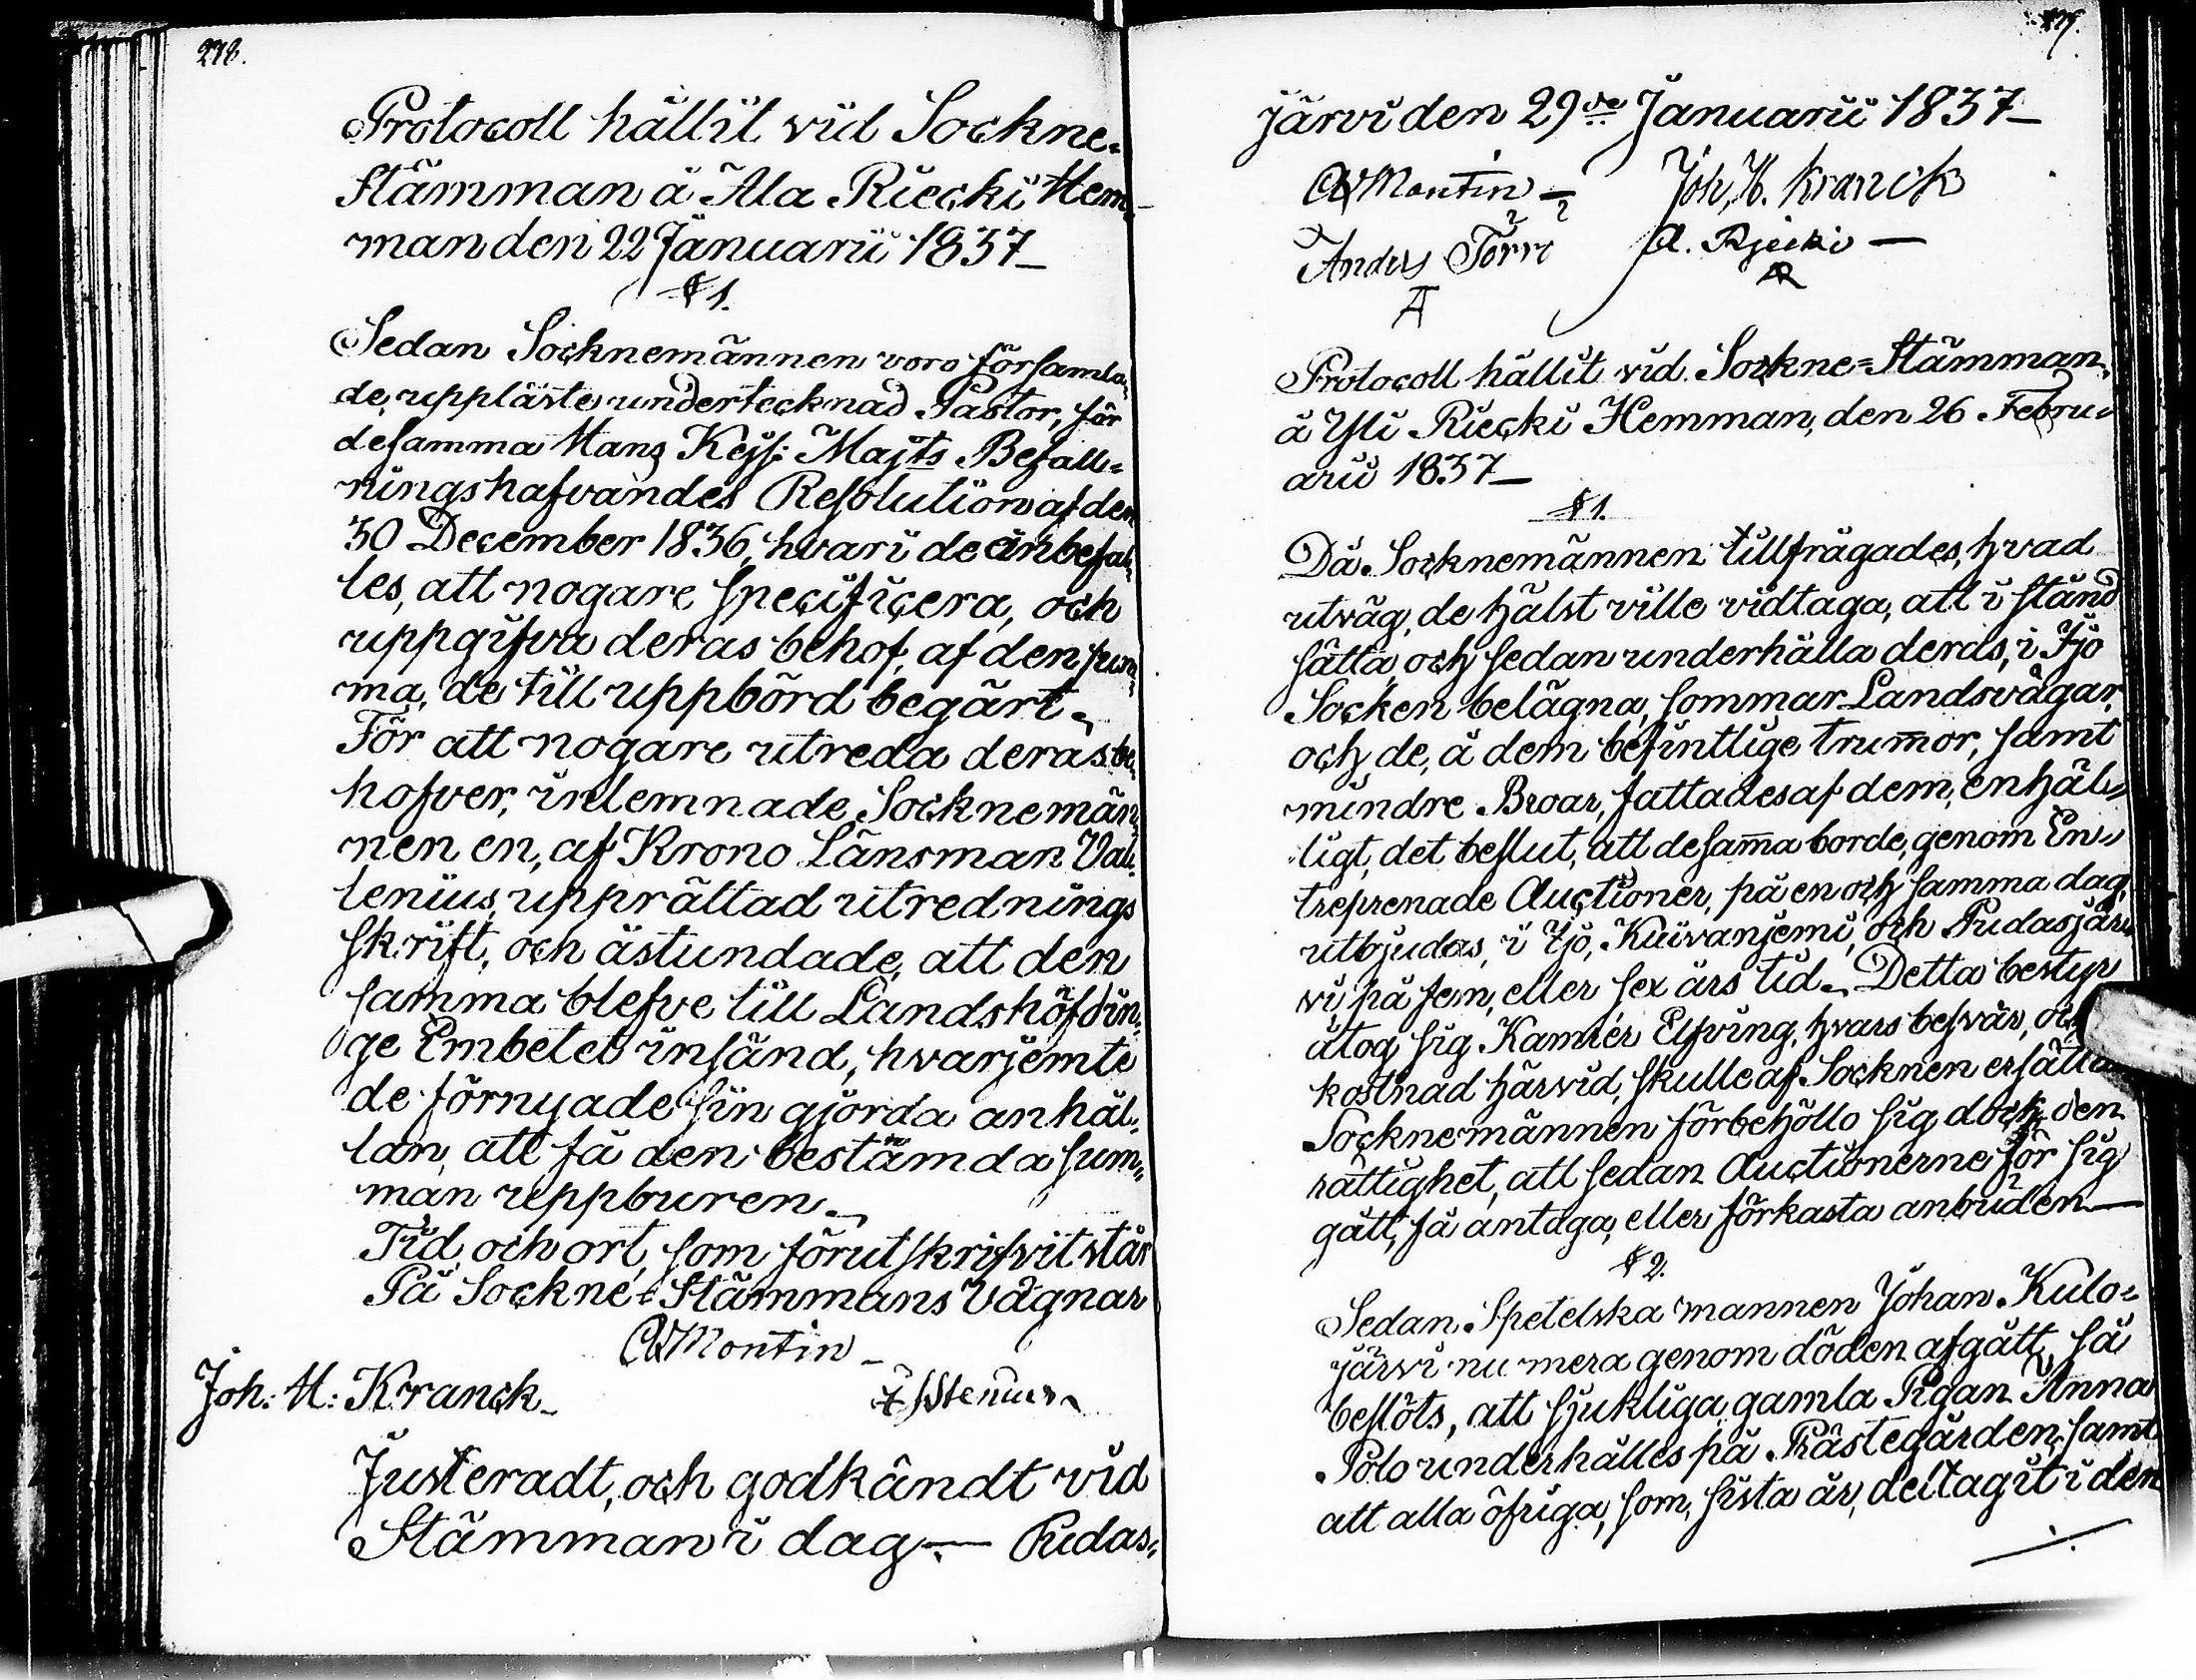 278.
Protocoll hållit vid Sockne-
Stämman å Ala Riecki Hem-
man den 22 Januarii 1837_
§ 1.
Sedan Socknemännen voro församla-
de, uppläste undertecknad Pastor, för
desamma Hans Kejs: Majts Befall-
ningshafvandes Resolution af den
30 December 1836, hvari de anbefal-
les, att nogare specificera, och
uppgifva deras behof, af den sum-
ma, de till uppbörd begärt._
För att nogare utreda deras be-
hofver, inlemnade Socknemän-
nen en, af Krono Länsman Val-
lenius, upprättad utrednings
skrift, och åstundade, att den
samma blefve till Landshöfdin-
ge Embetet insänd, hvarjemte
de förnyade sin gjorda anhål-
lan, att få den bestämda sum-
man uppburen._
Tid, och ort, som förut skrifvit står
På Sockne-Stämmans Vägnar
Montin_
Joh: H: Kranck_
Justeradt, och godkändt vid
Stämman i dag.— Pudas-
279.
järvi den 29de Januarii 1837_
Montin_ Joh, H. Kranck
Anders Törrö A. Rjecki —
A AR
Protocoll hållit vid Sockne-Stämman
å Yli Riecki Hemman, den 26 Febru-
arii 1837_
§ 1.
Då Socknemännen tillfrågades, hvad
utväg, de hälst ville vidtaga, att i stånd
sätta, och sedan underhålla deras, i Ijo
Socken belägna, sommar Landsvägar,
och de, å dem befintlige trum̅or, samt
mindre Broar, fattades af dem, enhäl-
ligt, det beslut, att desam̅a borde, genom En-
treprenade Auctioner, på en och samma dag,
utbjudas, i Ijo, Kuivanjemi, och Pudasjär-
vi, på fem, eller sex års tid._ Detta bestyr
åtog sig Kamrer Elfving, hvars besvär, och
kostnad härvid, skulle af Socknen ersättas
Socknemännen förbehöllo sig dock den
rättighet, att sedan Auctionerne för sig
gått, få antaga, eller förkasta anbuden—
§ 2.
Sedan Spetelska mannen Johan Kulo-
järvi nu mera genom döden afgått, så
beslöts, att sjukliga, gamla Pigan Anna
Polo underhålles på Prästegården, samt
att alla öfriga, som, sista år, deltagit i den
./.